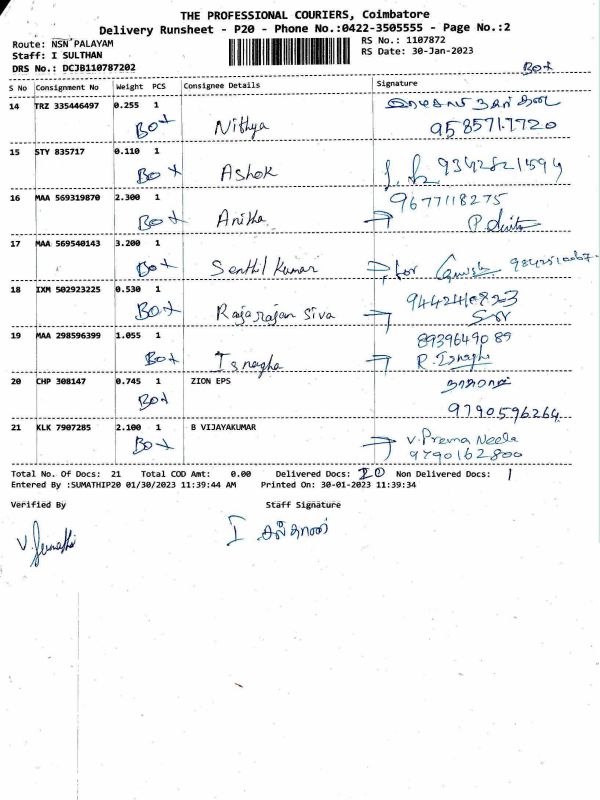 THE PROFESSIONAL COURIERS, Coimbatore
Delivery Runsheet - P20 - Phone No.:0422-3505555 - Page No.:2
Route: NSN PALAYAM
RS No.: 1107872
Staff: I SULTHAN
RS Date: 30-Jan-2023
DRS No.: DCJB110787202
Box
S No Consignment No Weight PCS Consignee Details Signature
14 TRZ 335446497 0.255 1
Box Nithya 9585717720
15 STY 835717 0.110 1
Box Ashok 9342821594
16 MAA 569319870 2.300 1 9677118275
Box Anitha
17 MAA 569540143 3.200 1
Box Senthil Kumar for
18 IXM 502923225 0.530 1
Box Rajarajan Siva
19 MAA 298596399 1.055 1 8939649089
Box Isnagha R. Isnagha
20 CHP 308147 0.745 1 ZION EPS
Box 9790596264
21 KLK 7907285 2.100 1 B VIJAYAKUMAR
Box V. Prema Neela
9790162800
Total No. Of Docs: 21 Total COD Amt: 0.00 Delivered Docs: 20 Non Delivered Docs: 1
Entered By :SUMATHIP20 01/30/2023 11:39:44 AM Printed On: 30-01-2023 11:39:34
Verified By Staff Signature
V. Sumathi I சுல்தான்